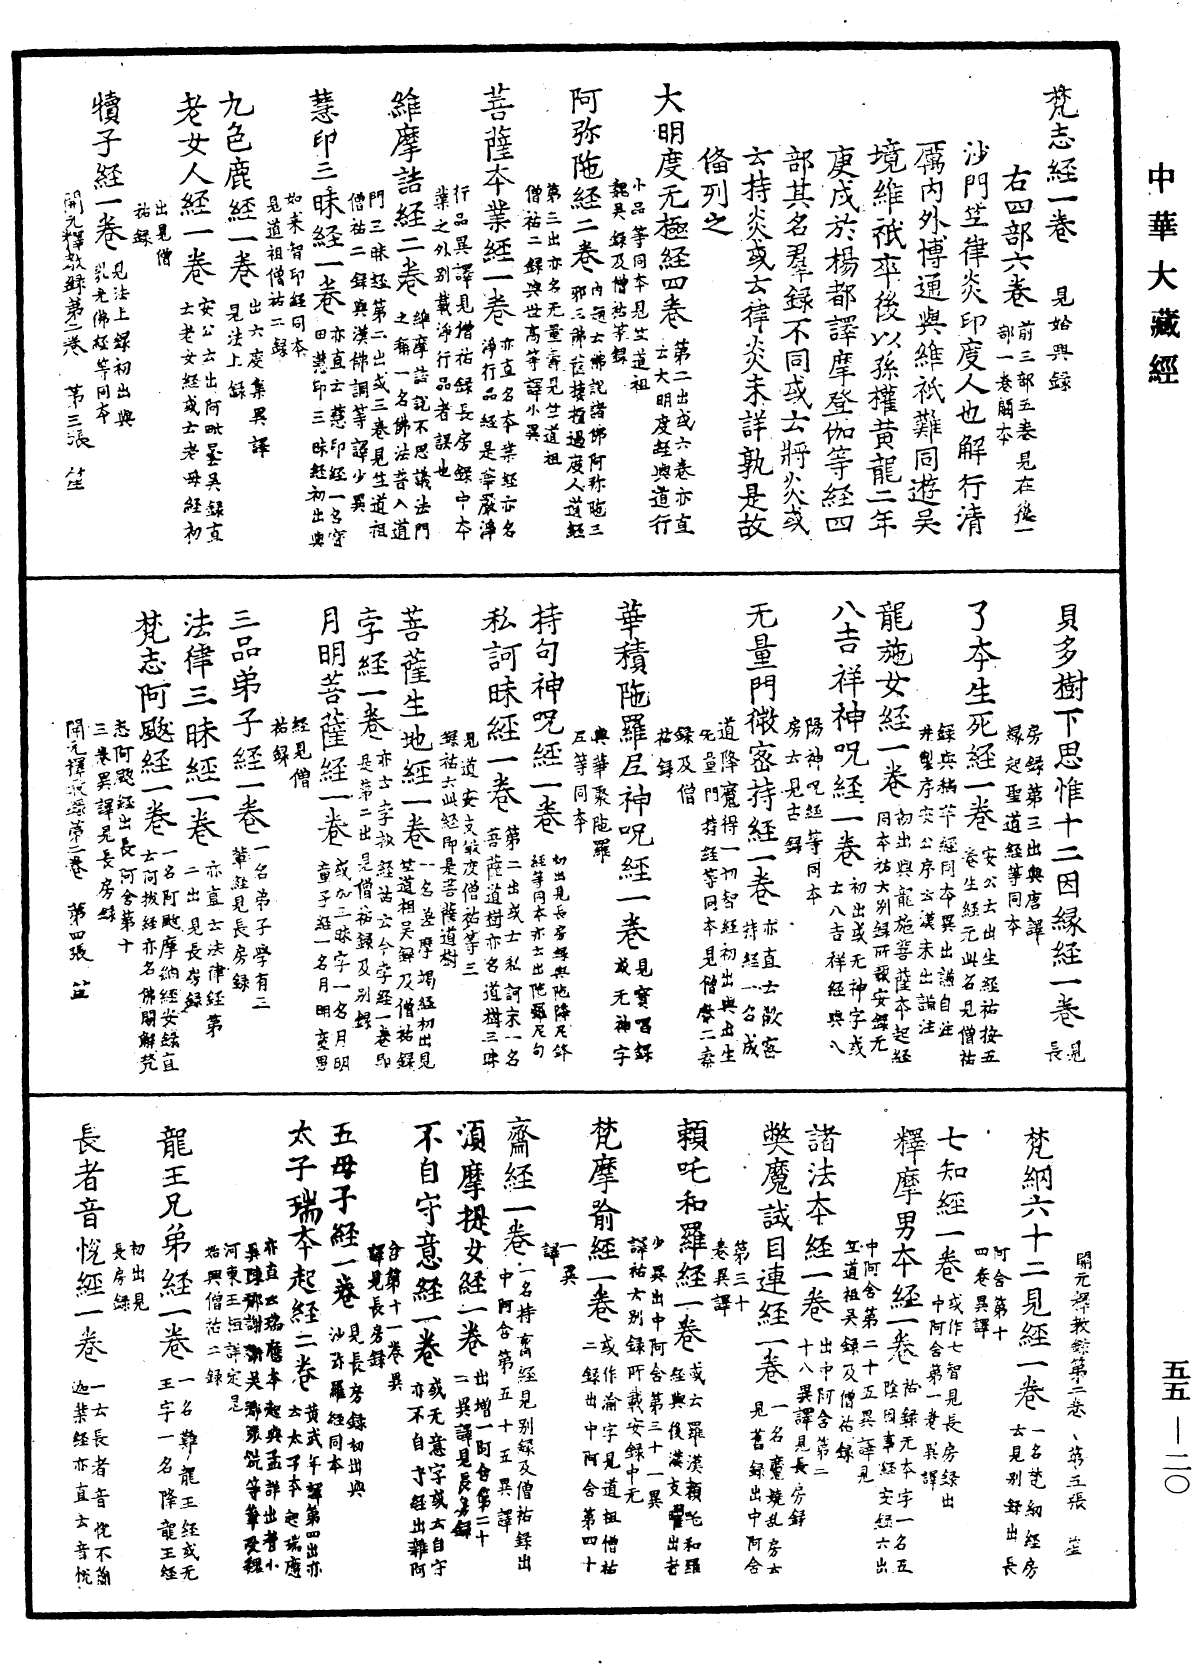 中華大藏經
梵志經一卷 見始興録
右四部六卷 前三部五卷見在後一部一卷闕本
沙門竺律炎印度人也解行清
厲内外博通與維祇難同遊吴
境維祇卒後以孫權黄龍二年
庚戌於楊都譯摩登伽等經四
部其名羣録不同或云將炎或
云持炎或云律炎未詳孰是故
俻列之
大明度无極經四卷 第二出或六卷亦直云大明度經與道行
小品等同本見竺道祖魏吴録及僧祐等録
阿弥陁經二卷 内題云佛説諸佛阿弥陁三耶三佛薩樓檀過度人道經
第二出亦名无量壽見竺道祖僧祐二録與世高等譯小異
菩薩本業經一卷 亦直名本業經亦名淨行品經是華嚴淨
行品異譯見僧祐録長房録中本業之外别載淨行品者誤也
維摩詰經二卷 維摩詰説不思議法門之稱一名佛法普入道
門三昧經第二出或三卷見竺道祖僧祐二録與漢佛調等譯少異
慧印三昧經一卷 亦直云慧印經一名寳田慧印三昧經初出與
如来智印經同本見道祖僧祐二録
九色鹿經一卷 出六度集異譯見法上録
老女人經一卷 安公云出阿毗曇吴録直云老女經或云老母經初
出見僧祐録
犢子經一卷 見法上録初出與乳光佛經等同本
開元釋教録第二卷 第三張 笙
貝多樹下思惟十二因緣經一卷 見長
房録第三出與唐譯緣起聖道經等同本
了本生死經一卷 安公云出生經祐按五卷生經无此名見僧祐
録與稻芉經同本異出謙自注并製序安公序云漢末出謙注
龍施女經一卷 初出與龍施菩薩本起經同本祐云别録所載安録无
八吉祥神呪經一卷 初出或无神字或云八吉祥經與八
陽神呪經等同本房云見古録
无量門微密持經一卷 亦直云微密持經一名成
道降魔得一切智經初出與出生无量門持經等同本見僧叡二秦
録及僧祐録
華積陁羅尼神呪經一卷 見寳唱録或无神字
與華聚陁羅尼等同本
持句神呪經一卷 初出見長房録與陁隣尼鉢經等同本亦云出陁羅尼句
私訶昧經一卷 第二出或云私訶末一名菩薩道樹亦名道樹三昧
見道安支敏度僧祐等三録祐云此經即是菩薩道樹
菩薩生地經一卷 一名差摩竭經初出見竺道祖吴録及僧祐録
孛經一卷 亦云孛抄經祐云今孛經一卷即是第二出見僧祐録及别録
月明菩薩經一卷 或加三昧字一名月明童子經一名月明童男
經見僧祐録
三品弟子經一卷 一名弟子學有三輩經見長房録
法律三昧經一卷 亦直云法律經第二出見長房録
梵志阿颰經一卷 一名阿颰摩納經安録直云阿拔經亦名佛開解梵
志阿颰經出長阿含第十三卷異譯見長房録
開元釋教録第二卷 第四張 笙
開元釋教録第二卷 第五張 笙
梵網六十二見經一卷 一名梵網經房云見别録出長
阿含第十四卷異譯
七知經一卷 或作七智見長房録出中阿含第一卷異譯
釋摩男本經一卷 祐録无本字一名五陰因事經安録云出
中阿含第二十五異譯見竺道祖吴録及僧祐録
諸法本經一卷 出中阿含第二十八異譯見長房録
弊魔試目連經一卷 一名魔嬈亂房云見舊録出中阿含
第三十卷異譯
賴吒和羅經一卷 或云羅漢賴吒和羅經與後漢支曜出者
少異出中阿含第三十一異譯祐云别録所載安録中无
梵摩喻經一卷 或作渝字見道祖僧祐二録出中阿含第四十
一異譯
齋經一卷 一名持齋經見别録及僧祐録出中阿含第五十五異譯
須摩提女經一卷 出増一阿含第二十二異譯見長房録
不自守意經一卷 或无意字或云自守亦不自守經出雜阿
含第十一卷異譯見長房録
五母子經一卷 見長房録初出與沙弥羅經同本
太子瑞本起經二卷 黄武年譯第四出亦云太子本起瑞應
亦直云瑞應本起與孟詳出者小異陳郡謝鏘吴郡張詵等筆受魏
河東王植詳定見始興僧祐二録
龍王兄弟經一卷 一名難龍王經或无王字一名降龍王經
初出見長房録
長者音恱經一卷 一云長者音恱不蘭迦葉經亦直云音恱
五五—二〇